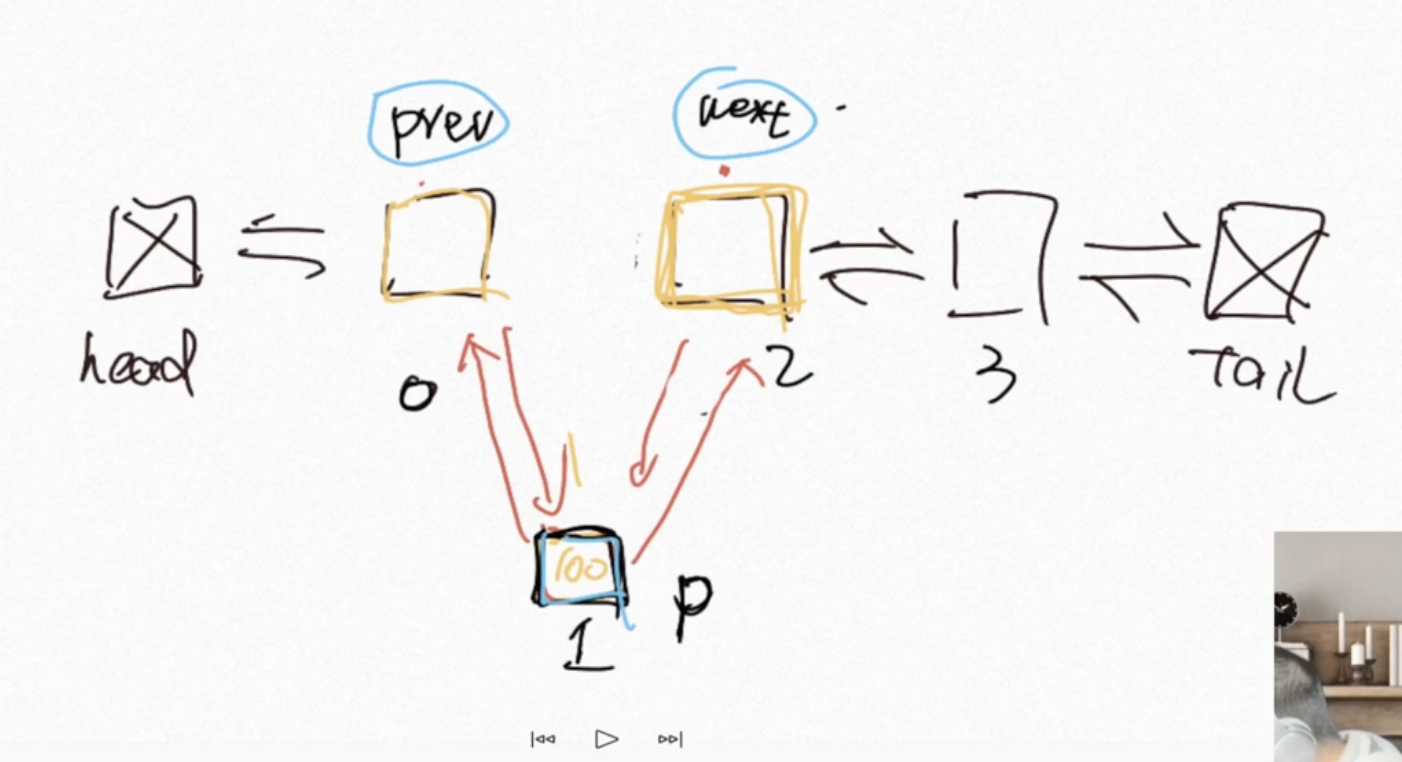 prev next
head 0 2 3 Tail
100
1 p